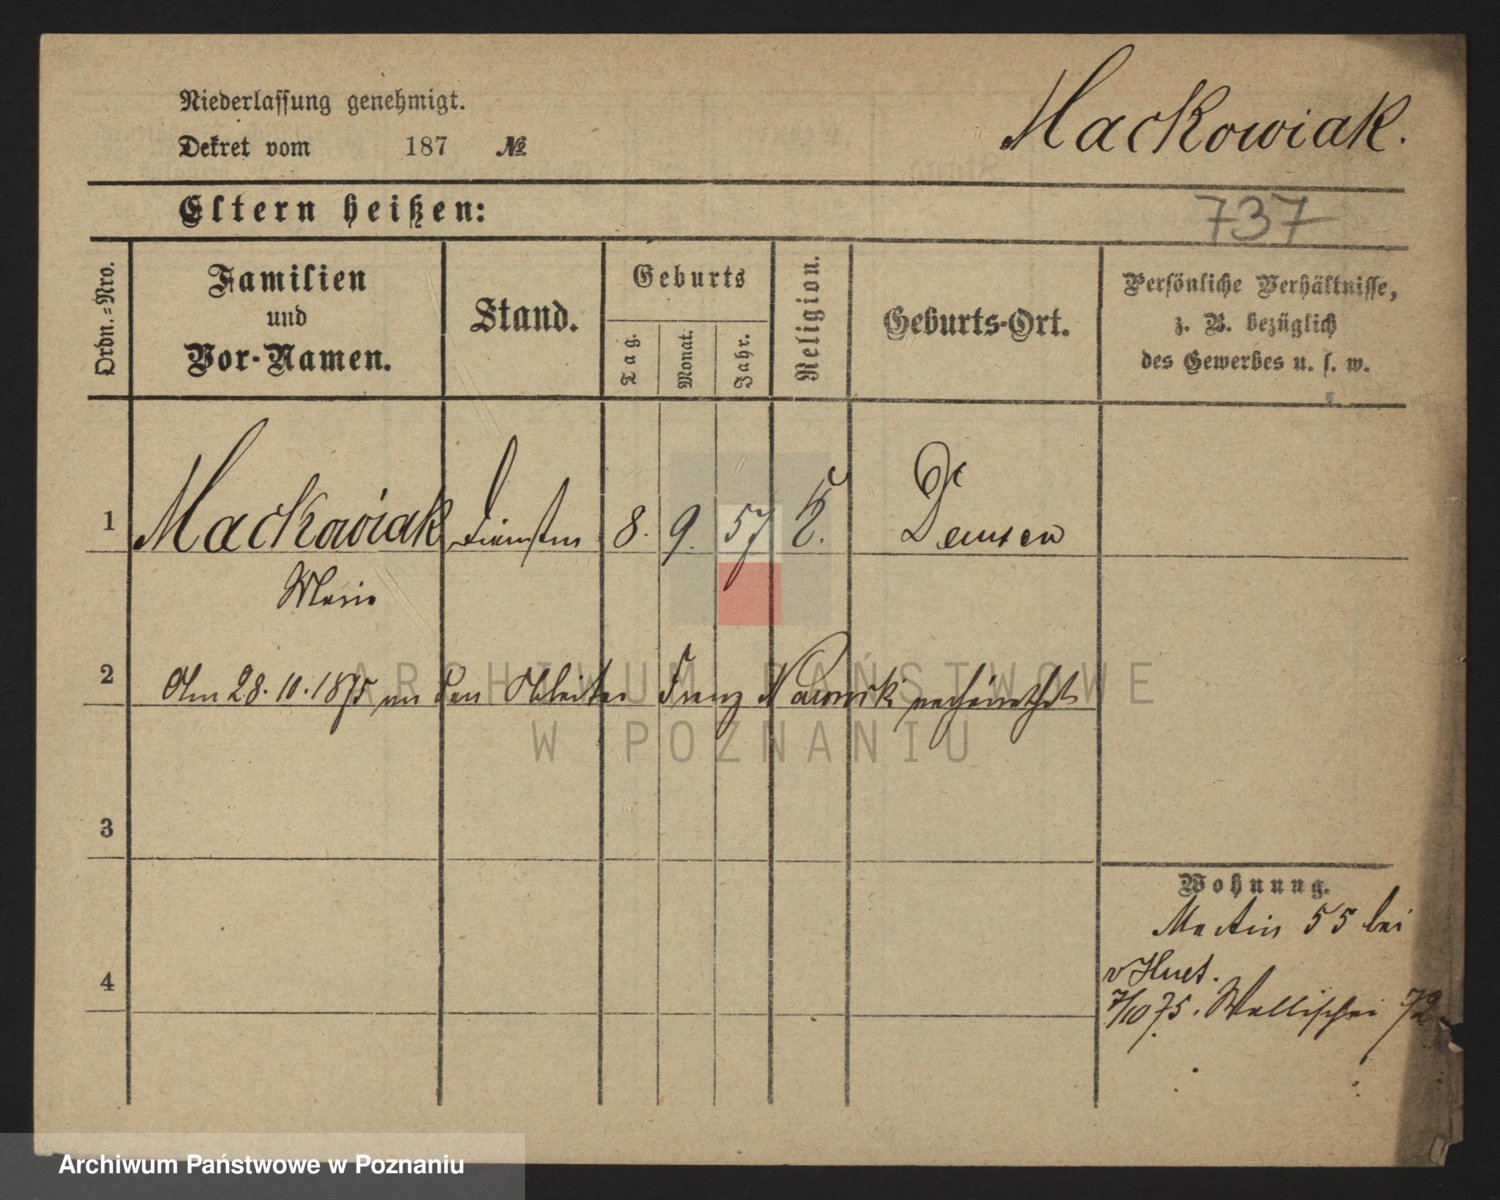 Niederlassung genehmigt.
Mackowiak.
Dekret vom 187 №
Eltern heißen:
737
Ordn.=Nro.
Familien und Vor-Namen.
Stand.
Geburts
Tag.
Monat.
Jahr.
Religion.
Geburts-Ort.
Persönliche Verhältnisse,
z. B. bezüglich
des Gewerbes u. s. w.
1 Mackowiak 8. 9. 57 K.
Marie
2 Am 28.10.1875 an den Arbeiter Franz Nawrocki verheirathet
3
4
Wohnung.
Martin 55 bei
v Huet.
7/10 75. Wallischei 72
ARCHIWUM PAŃSTWOWE
W POZNANIU
Archiwum Państwowe w Poznaniu